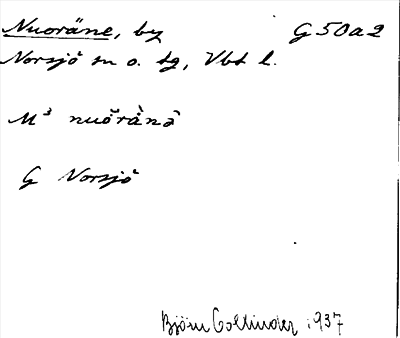 Nuoräne, by G50a2
Norsjö sn o. tg, Vbt l.
M³ nuŏrànə̂
G Norsjö
Björn Collinder 1937